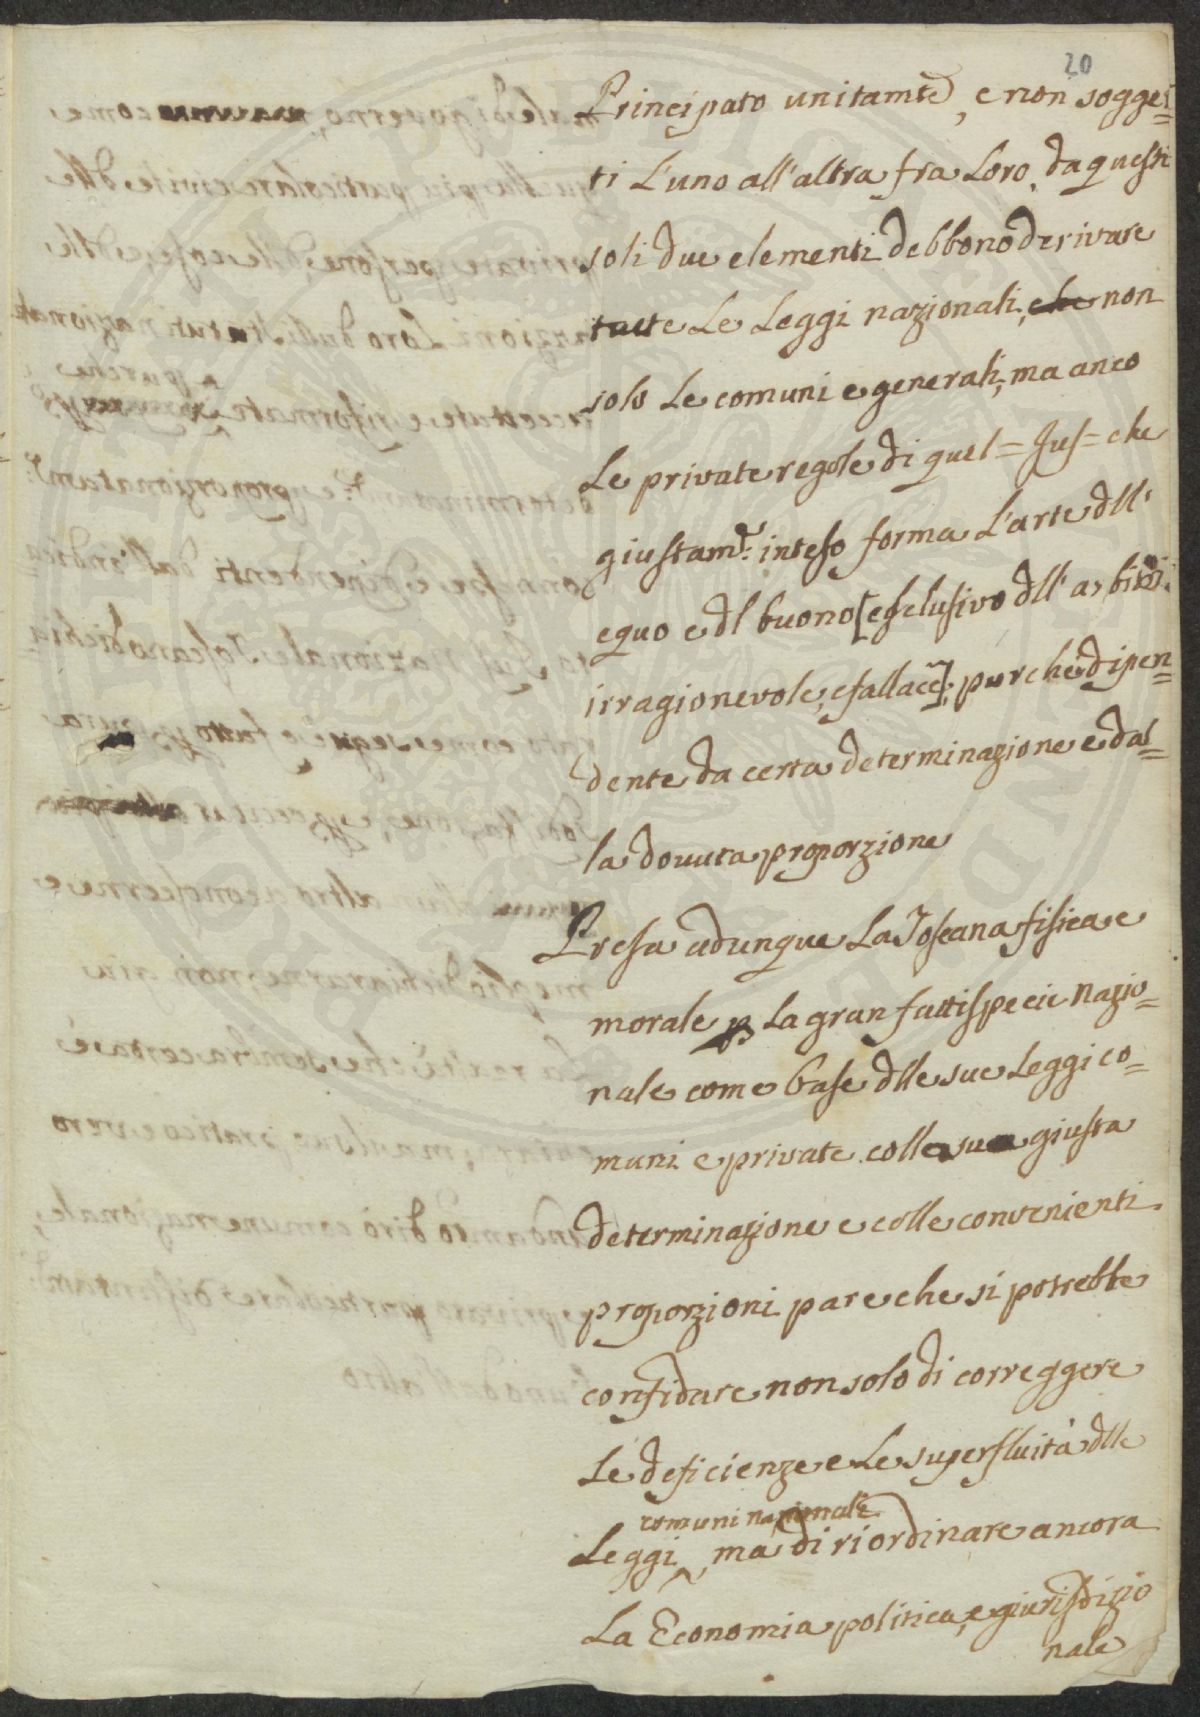 20
Principato unitamte, e non sogget=
ti L'uno all'altra fra Loro, da questi
soli due elementi debbono derivare
tutte Le Leggi nazionali, che non
solo Le comuni e generali, ma anco
Le private regole di quel = Jus = che
giustamte: inteso forma L'arte dll'
equo e dl buono [esclusivo dll' arbitrio
irragionevole, e fallace]; purche dipen=
dente da certa determinazione e dal=
la dovuta proporzione
Presa adunque La Toscana fisica e
morale p La gran fattispecie Nazio=
nale come base dlle sue Leggi co=
muni e private colla sua giusta
determinazione e colle convenienti
proporzioni pare che si potrebbe
confidare non solo di correggere
Le deficienze e Le superfluità dlle
comuni nazionali
Leggi ma di riordinare ancora
La Economia politica, e giurisdizio
nale